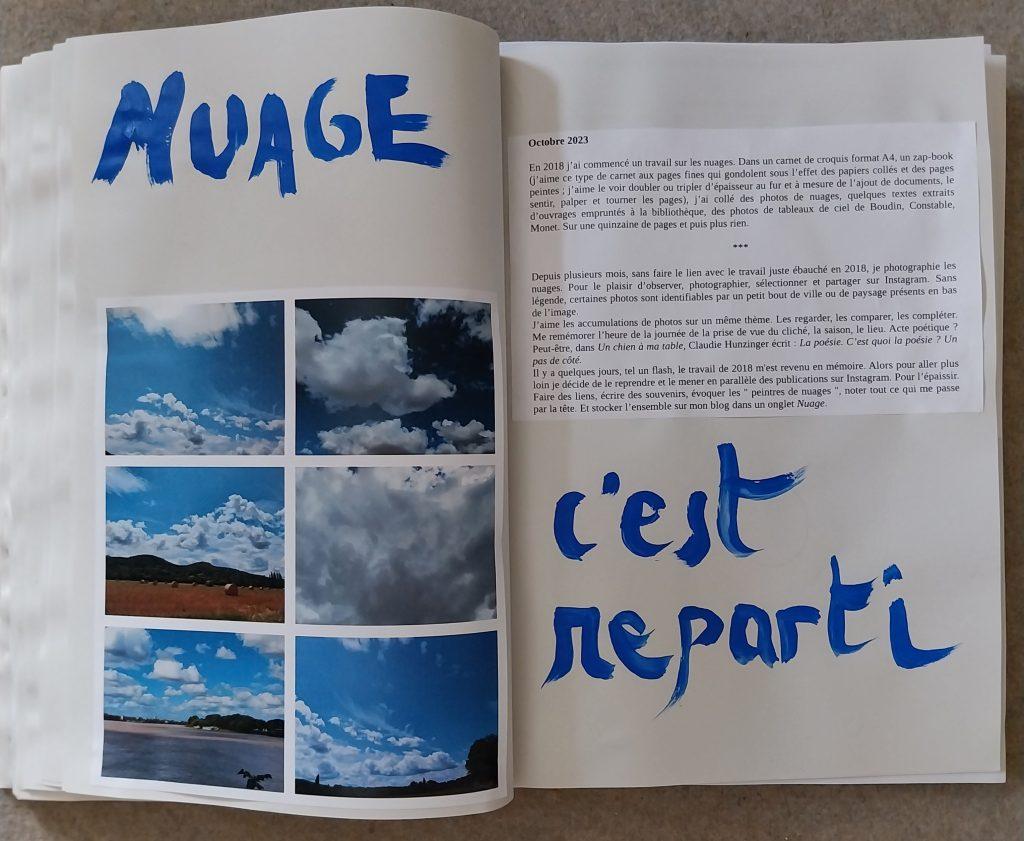 NUAGE
Octobre 2023
En 2018 j'ai commencé un travail sur les nuages. Dans un carnet de croquis format A4, un zap-book
(j'aime ce type de carnet aux pages fines qui gondolent sous l'effet des papiers collés et des pages
peintes ; j'aime le voir doubler ou tripler d'épaisseur au fur et à mesure de l'ajout de documents, le
sentir, palper et tourner les pages), j'ai collé des photos de nuages, quelques textes extraits
d'ouvrages empruntés à la bibliothèque, des photos de tableaux de ciel de Boudin, Constable,
Monet. Sur une quinzaine de pages et puis plus rien.
***
Depuis plusieurs mois, sans faire le lien avec le travail juste ébauché en 2018, je photographie les
nuages. Pour le plaisir d'observer, photographier, sélectionner et partager sur Instagram. Sans
légende, certaines photos sont identifiables par un petit bout de ville ou de paysage présents en bas
de l'image.
J'aime les accumulations de photos sur un même thème. Les regarder, les comparer, les compléter.
Me remémorer l'heure de la journée de la prise de vue du cliché, la saison, le lieu. Acte poétique ?
Peut-être, dans Un chien à ma table, Claudie Hunzinger écrit : La poésie. C'est quoi la poésie ? Un
pas de côté.
Il y a quelques jours, tel un flash, le travail de 2018 m'est revenu en mémoire. Alors pour aller plus
loin je décide de le reprendre et le mener en parallèle des publications sur Instagram. Pour l'épaissir.
Faire des liens, écrire des souvenirs, évoquer les " peintres de nuages ", noter tout ce qui me passe
par la tête. Et stocker l'ensemble sur mon blog dans un onglet Nuage.
c'est
reparti